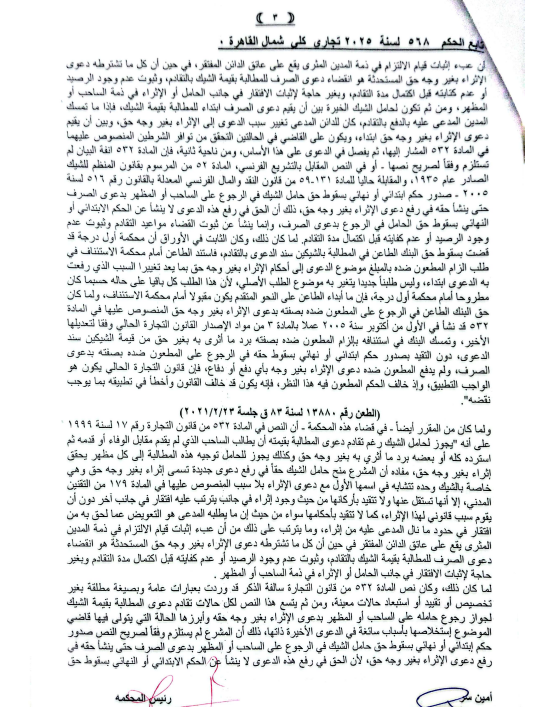 ( ٣ )
تابع الحكم ٥٦٨ لسنة ٢٠٢٥ تجارى كلي شمال القاهرة .
أن عبء إثبات قيام الالتزام في ذمة المدين المثرى يقع على عاتق الدائن المفتقر، في حين أن كل ما تشترطه دعوى
الإثراء بغير وجه حق المستحدثة هو انقضاء دعوى الصرف للمطالبة بقيمة الشيك بالتقادم، وثبوت عدم وجود الرصيد
أو عدم كفايته قبل اكتمال مدة التقادم، وبغير حاجة لإثبات الافتقار في جانب الحامل أو الإثراء في ذمة الساحب أو
المظهر، ومن ثم تكون لحامل الشيك الخيرة بين أن يقيم دعوى الصرف ابتداء للمطالبة بقيمة الشيك، فإذا ما تمسك
المدين المدعى عليه بالدفع بالتقادم، كان للدائن المدعى تغيير سبب الدعوى إلى الإثراء بغير وجه حق، وبين أن يقيم
دعوى الإثراء بغير وجه حق ابتداء، ويكون على القاضي في الحالتين التحقق من توافر الشرطين المنصوص عليهما
في المادة ٥٣٢ المشار إليها، ثم يفصل في الدعوى على هذا الأساس، ومن ناحية ثانية، فإن المادة ٥٣٢ آنفة البيان لم
تستلزم وفقاً لصريح نصها - أو في النص المقابل بالتشريع الفرنسي، المادة ٥٢ من المرسوم بقانون المنظم للشيك
الصادر عام ١٩٣٥، والمقابلة حالياً للمادة ١٣١-٥٩ من قانون النقد والمال الفرنسي المعدلة بالقانون رقم ٥١٦ لسنة
٢٠٠٥ - صدور حكم ابتدائي أو نهائي بسقوط حق حامل الشيك في الرجوع على الساحب أو المظهر بدعوى الصرف
حتى ينشأ حقه في رفع دعوى الإثراء بغير وجه حق، ذلك أن الحق في رفع هذه الدعوى لا ينشأ عن الحكم الابتدائي أو
النهائي بسقوط حق الحامل في الرجوع بدعوى الصرف، وإنما ينشأ عن ثبوت انقضاء مواعيد التقادم وثبوت عدم
وجود الرصيد أو عدم كفايته قبل اكتمال مدة التقادم. لما كان ذلك، وكان الثابت في الأوراق أن محكمة أول درجة قد
قضت بسقوط حق البنك الطاعن في المطالبة بالشيكين سند الدعوى بالتقادم، فاستند الطاعن أمام محكمة الاستئناف في
طلب الزام المطعون ضده بالمبلغ موضوع الدعوى إلى أحكام الإثراء بغير وجه حق بما يعد تغييرا السبب الذي رفعت
به الدعوى ابتداء، وليس طلبا جديدا يتغير به موضوع الطلب الأصلي، لأن هذا الطلب كل باقيا على حاله حسبما كان
مطروحا أمام محكمة أول درجة، فإن ما أبداه الطاعن على النحو المتقدم يكون مقبولا أمام محكمة الاستئناف، ولما كان
حق البنك الطاعن في الرجوع على المطعون ضده بصفته بدعوى الإثراء بغير وجه حق المنصوص عليها في المادة
٥٣٢ قد نشأ في الأول من أكتوبر سنة ٢٠٠٥ عملا بالمادة ٣ من مواد الإصدار القانون التجارة الحالي وفقا لتعديلها
الأخير، وتمسك البنك في استئنافه بإلزام المطعون ضده بصفته برد ما أثرى به بغير حق من قيمة الشيكين سند
الدعوى، دون التقيد بصدور حكم ابتدائي أو نهائي بسقوط حقه في الرجوع على المطعون ضده بصفته بدعوى
الصرف، ولم يدفع المطعون ضده دعوى الإثراء بغير وجه حق بأي دفع أو دفاع، فإن قانون التجارة الحالي يكون هو
الواجب التطبيق، وإذ خالف الحكم المطعون فيه هذا النظر، فإنه يكون قد خالف القانون وأخطأ في تطبيقه بما يوجب
نقضه".
(الطعن رقم ١٣٨٨٠ لسنة ٨٣ ق جلسة ٢٠٢١/٢/٢٣)
ولما كان من المقرر أيضاً - في قضاء هذه المحكمة - أن النص في المادة ٥٣٢ من قانون التجارة رقم ١٧ لسنة ١٩٩٩
على أنه "يجوز لحامل الشيك رغم تقادم دعوى المطالبة بقيمته أن يطالب الساحب الذي لم يقدم مقابل الوفاء أو قدمه ثم
استرده كله أو بعضه برد ما أثري به بغير وجه حق وكذلك يجوز للحامل توجيه هذه المطالبة إلى كل مظهر يحقق
إثراء بغير وجه حق، مفاده أن المشرع منح حامل الشيك حقاً في رفع دعوى جديدة تسمى إثراء بغير وجه حق وهي
خاصة بالشيك وحده تتشابه في اسمها الأول مع دعوى الإثراء بلا سبب المنصوص عليها في المادة ١٧٩ من التقنين
المدني، إلا أنها تستقل عنها ولا تتقيد بأركانها من حيث وجود إثراء في جانب يترتب عليه افتقار في جانب آخر دون أن
يقوم سبب قانوني لهذا الإثراء، كما لا تتقيد بأحكامها سواء من حيث إن ما يطلبه المدعى هو التعويض عما لحق به من
افتقار في حدود ما نال المدعى عليه من إثراء، وما يترتب على ذلك من أن عبء إثبات قيام الالتزام في ذمة المدين
المثرى يقع على عاتق الدائن المفتقر في حين أن كل ما تشترطه دعوى الإثراء بغير وجه حق المستحدثة هو انقضاء
دعوى الصرف للمطالبة بقيمة الشيك بالتقادم، وثبوت عدم وجود الرصيد أو عدم كفايته قبل اكتمال مدة التقادم وبغير
حاجة لإثبات الافتقار في جانب الحامل أو الإثراء في ذمة الساحب أو المظهر .
لما كان ذلك، وكان نص المادة ٥٣٢ من قانون التجارة سالفة الذكر قد وردت بعبارات عامة وبصيغة مطلقة بغير
تخصيص أو تقييد أو استبعاد حالات معينة، ومن ثم يتسع هذا النص لكل حالات تقادم دعوى المطالبة بقيمة الشيك
لجواز رجوع حامله على الساحب أو المظهر بدعوى الإثراء بغير وجه حقه وأبرزها الحالة التي يتولى فيها قاضي
الموضوع إستخلاصها بأسباب سائغة في الدعوى الأخيرة ذاتها، ذلك أن المشرع لم يستلزم وفقاً لصريح النص صدور
حكم إبتدائي أو نهائي بسقوط حق حامل الشيك في الرجوع على الساحب أو المظهر بدعوى الصرف حتى ينشأ حقه في
رفع دعوى الإثراء بغير وجه حق، لأن الحق في رفع هذه الدعوى لا ينشأ عن الحكم الابتدائي أو النهائي بسقوط حق
أمين سر
رئيس المحكمه